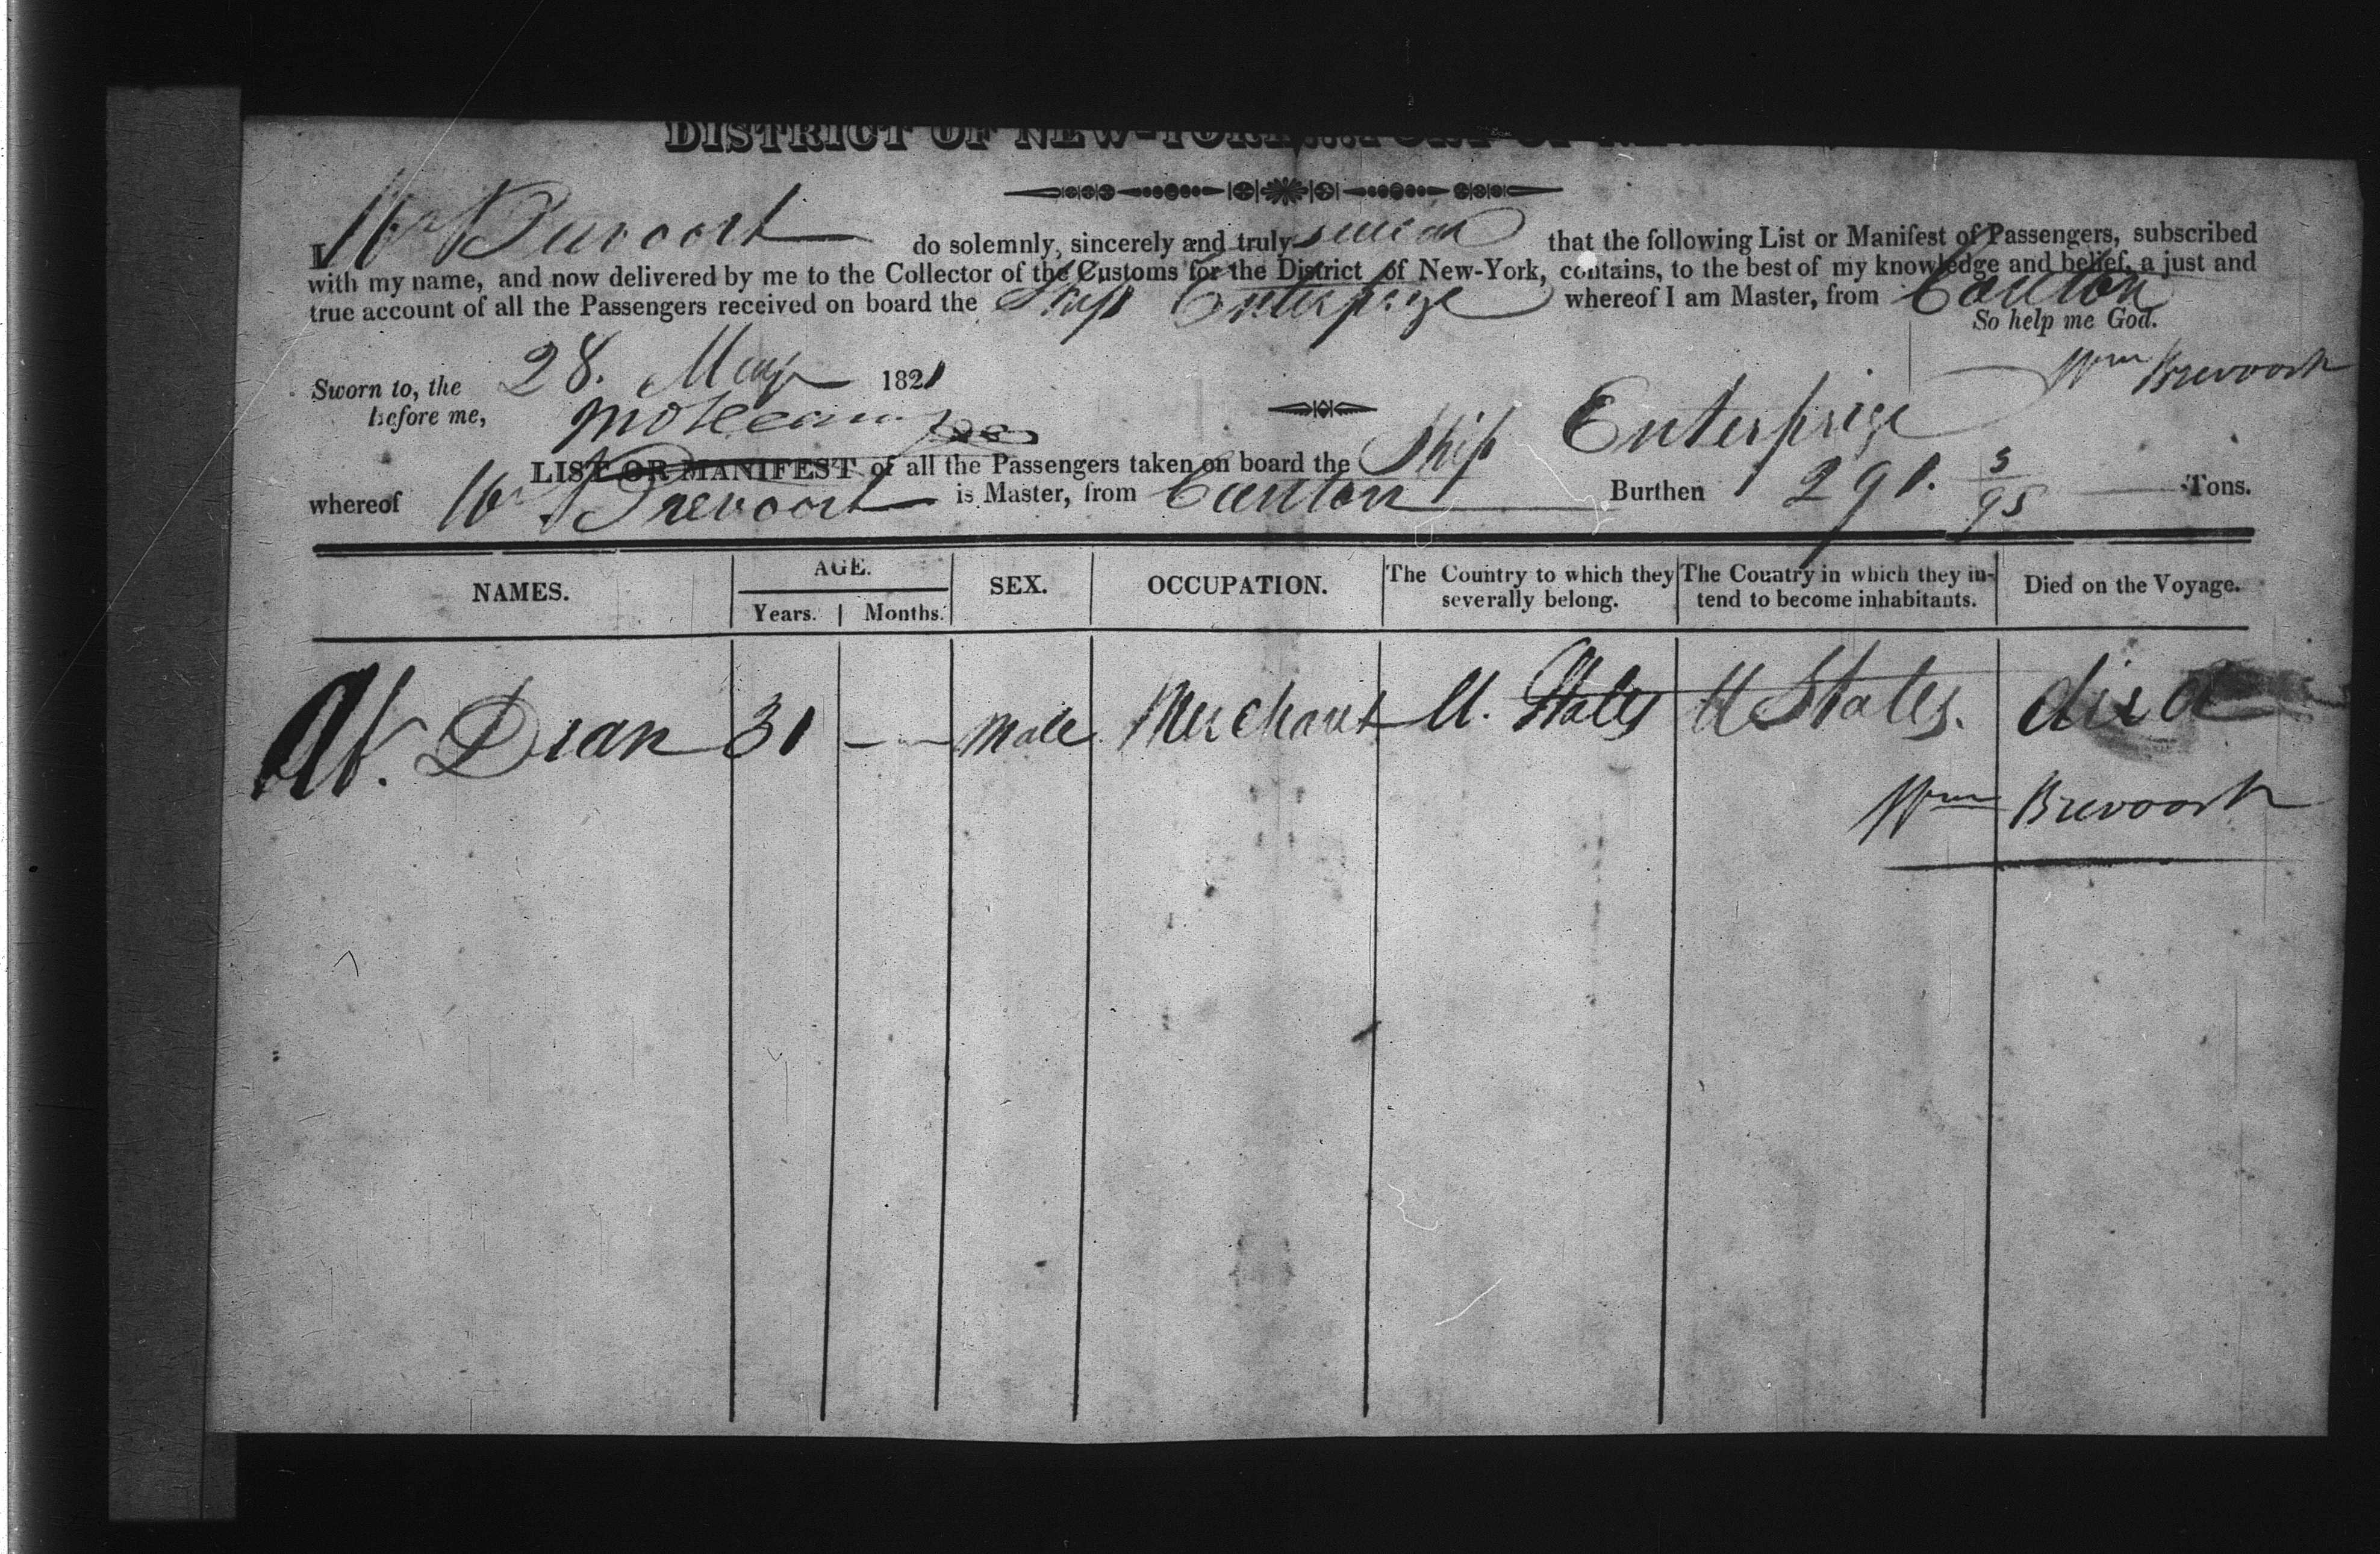 DISTRICT OF NEW-YORK....PORT OF NEW
I Wm Brevoort do solemnly, sincerely and truly swear that the following List or Manifest of Passengers, subscribed
with my name, and now delivered by me to the Collector of the Customs for the District of New-York, contains, to the best of my knowledge and belief, a just and
true account of all the Passengers received on board the Ship Enterprize whereof I am Master, from Canton
So help me God.
Sworn to, the 28. May 1821 Wm Brevoort
before me,
LIST OR MANIFEST of all the Passengers taken on board the Ship Enterprize
whereof Wm Brevoort is Master, from Canton Burthen 291. 5/95 Tons.
NAMES. AGE. SEX. OCCUPATION. The Country to which they severally belong. The Country in which they intend to become inhabitants. Died on the Voyage.
Years. Months.
W. Dean 31 — Male Merchant U. States U States. died
Wm Brevoort